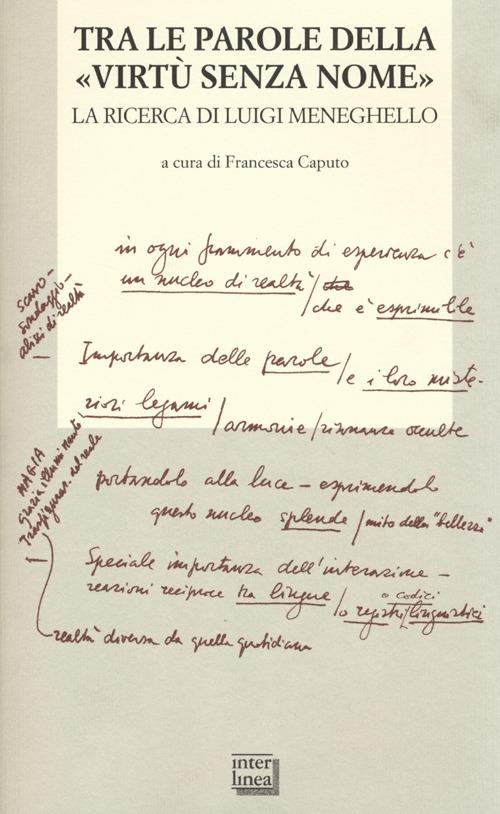 TRA LE PAROLE DELLA
«VIRTÙ SENZA NOME»
LA RICERCA DI LUIGI MENEGHELLO
a cura di Francesca Caputo
in ogni frammento di esperienza c'è
un nucleo di realtà /
/ che è esprimibile
scavo –
sondaggio –
di realtà
Importanza delle parole / e i loro miste-
riosi legami / armonie / risonanze occulte
MAGIA
Grazia, illuminante,
del reale
portandolo alla luce – esprimendolo
questo nucleo splende / mito della "bellezza"
Speciale importanza dell'interazione –
o codici
reazioni reciproce tra lingue / o registri linguistici
realtà diversa da quella quotidiana
inter
linea